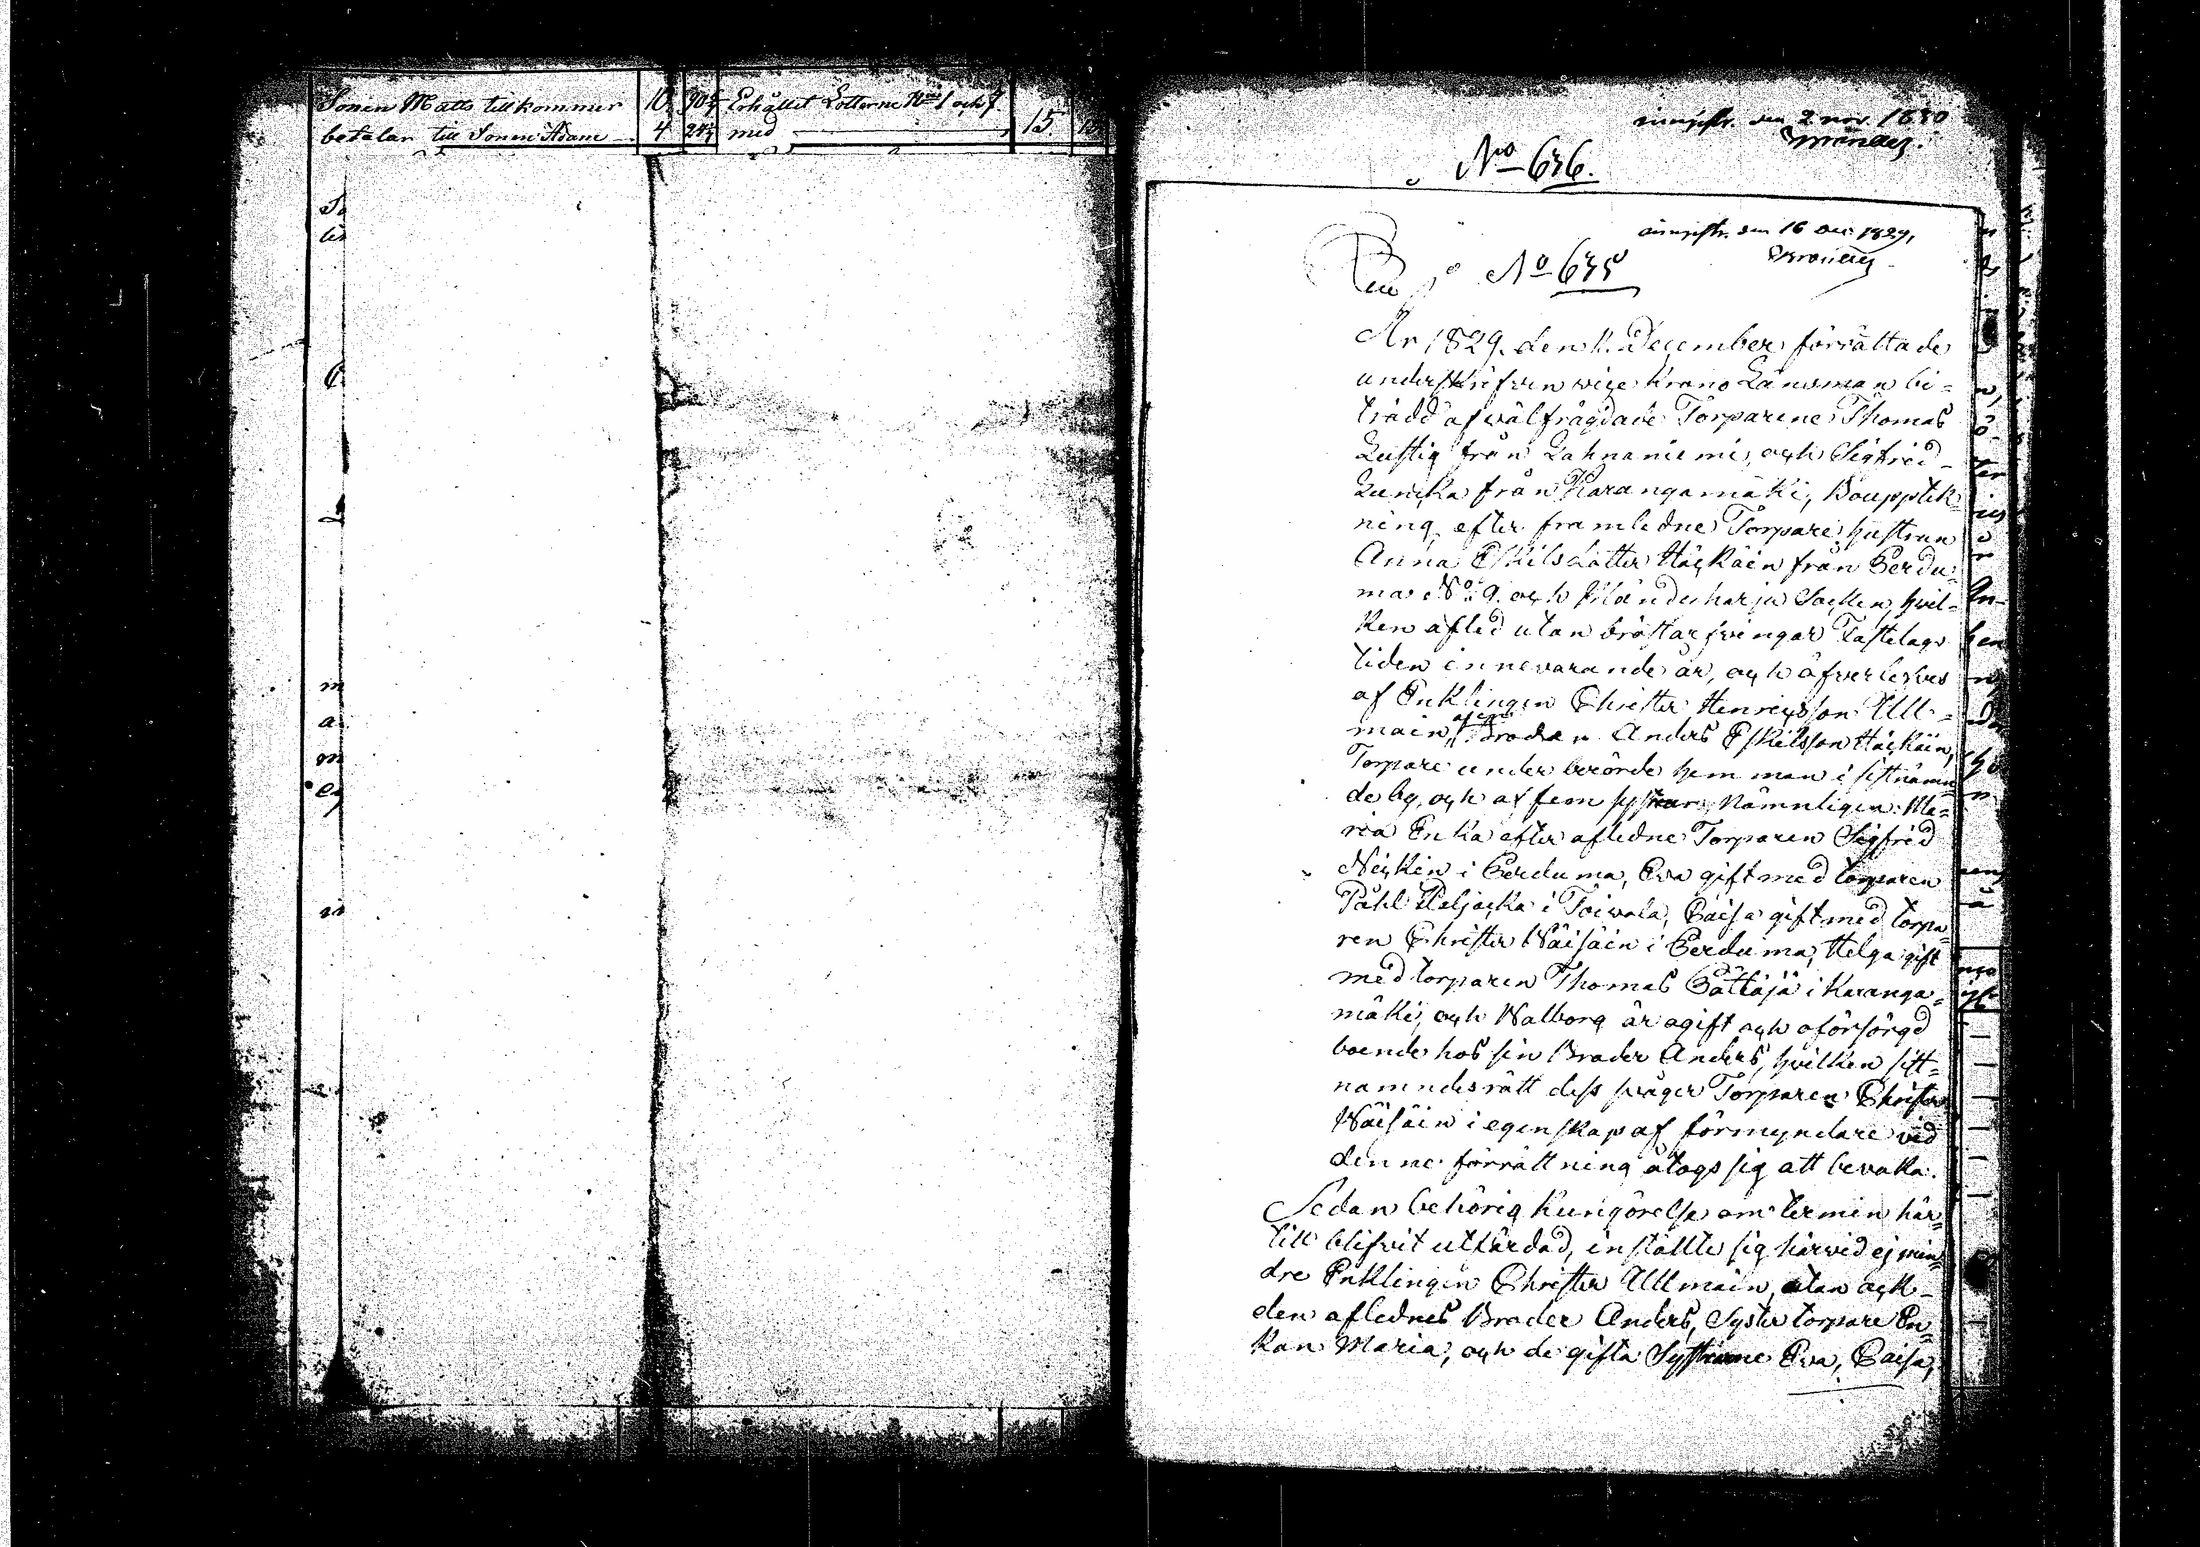 Sonen Matts tillkommer 10 90 Erhållit Lotterne No 1 och 7.
betalar till Sonen Adam 4 24 med 15.
den 2 nov. 1830
No 636.
den 16 Dec. 1829,
No 635
År 1829. den 11. December förrättade
underskrifven vice Krono Länsman bi=
trädd af välfrägdade Torparene Thomas
Lustig från Lahnaniemi, och Sigfrid
från Karangamäki, Bouppteck=
ning, efter framledne Torpare hustrun
Anna Eskilsdotter Häckäin från Gerdu=
ma No 9. och Mändyharju Socken, hvil=
ken afled utan bröstarfvingar Fastelags
tiden innevarande år, och öfverlefves
af Enklingen Christer Henricsson Ull=
main, af en Brodren Anders Eskilsson Häckäin,
Torpare under berörde hemman i sistnämn=
de by, och af fem systrar nämnligen: Ma=
ria Enka efter afledne Torparen Sigfrid
Neickin i Gerduma, Eva gift med torparen
Påhl i Toivola, Caisa gift med torpa=
ren Christer Wäisäin i Gerduma, Helga gift
med torparen Thomas Pättäjä i Karanga=
mäki, och Walborg är ogift och oförsörgd
boende hos sin Broder Anders, hvilken sist=
namndes rätt dess svåger Torparen Christer
Wäisäin i egenskap af förmyndare vid
denne förrättning åtogs sig att bevaka.
Sedan behörig kungörelse om termin här=
till blifvit utfärdad, inställte sig härvid ej min=
dre Enklingen Christer Ullmain, utan ock
den aflednes Broder Anders, Syster torpare En=
kan Maria, och de gifta Systrarne Eva, Caisa,